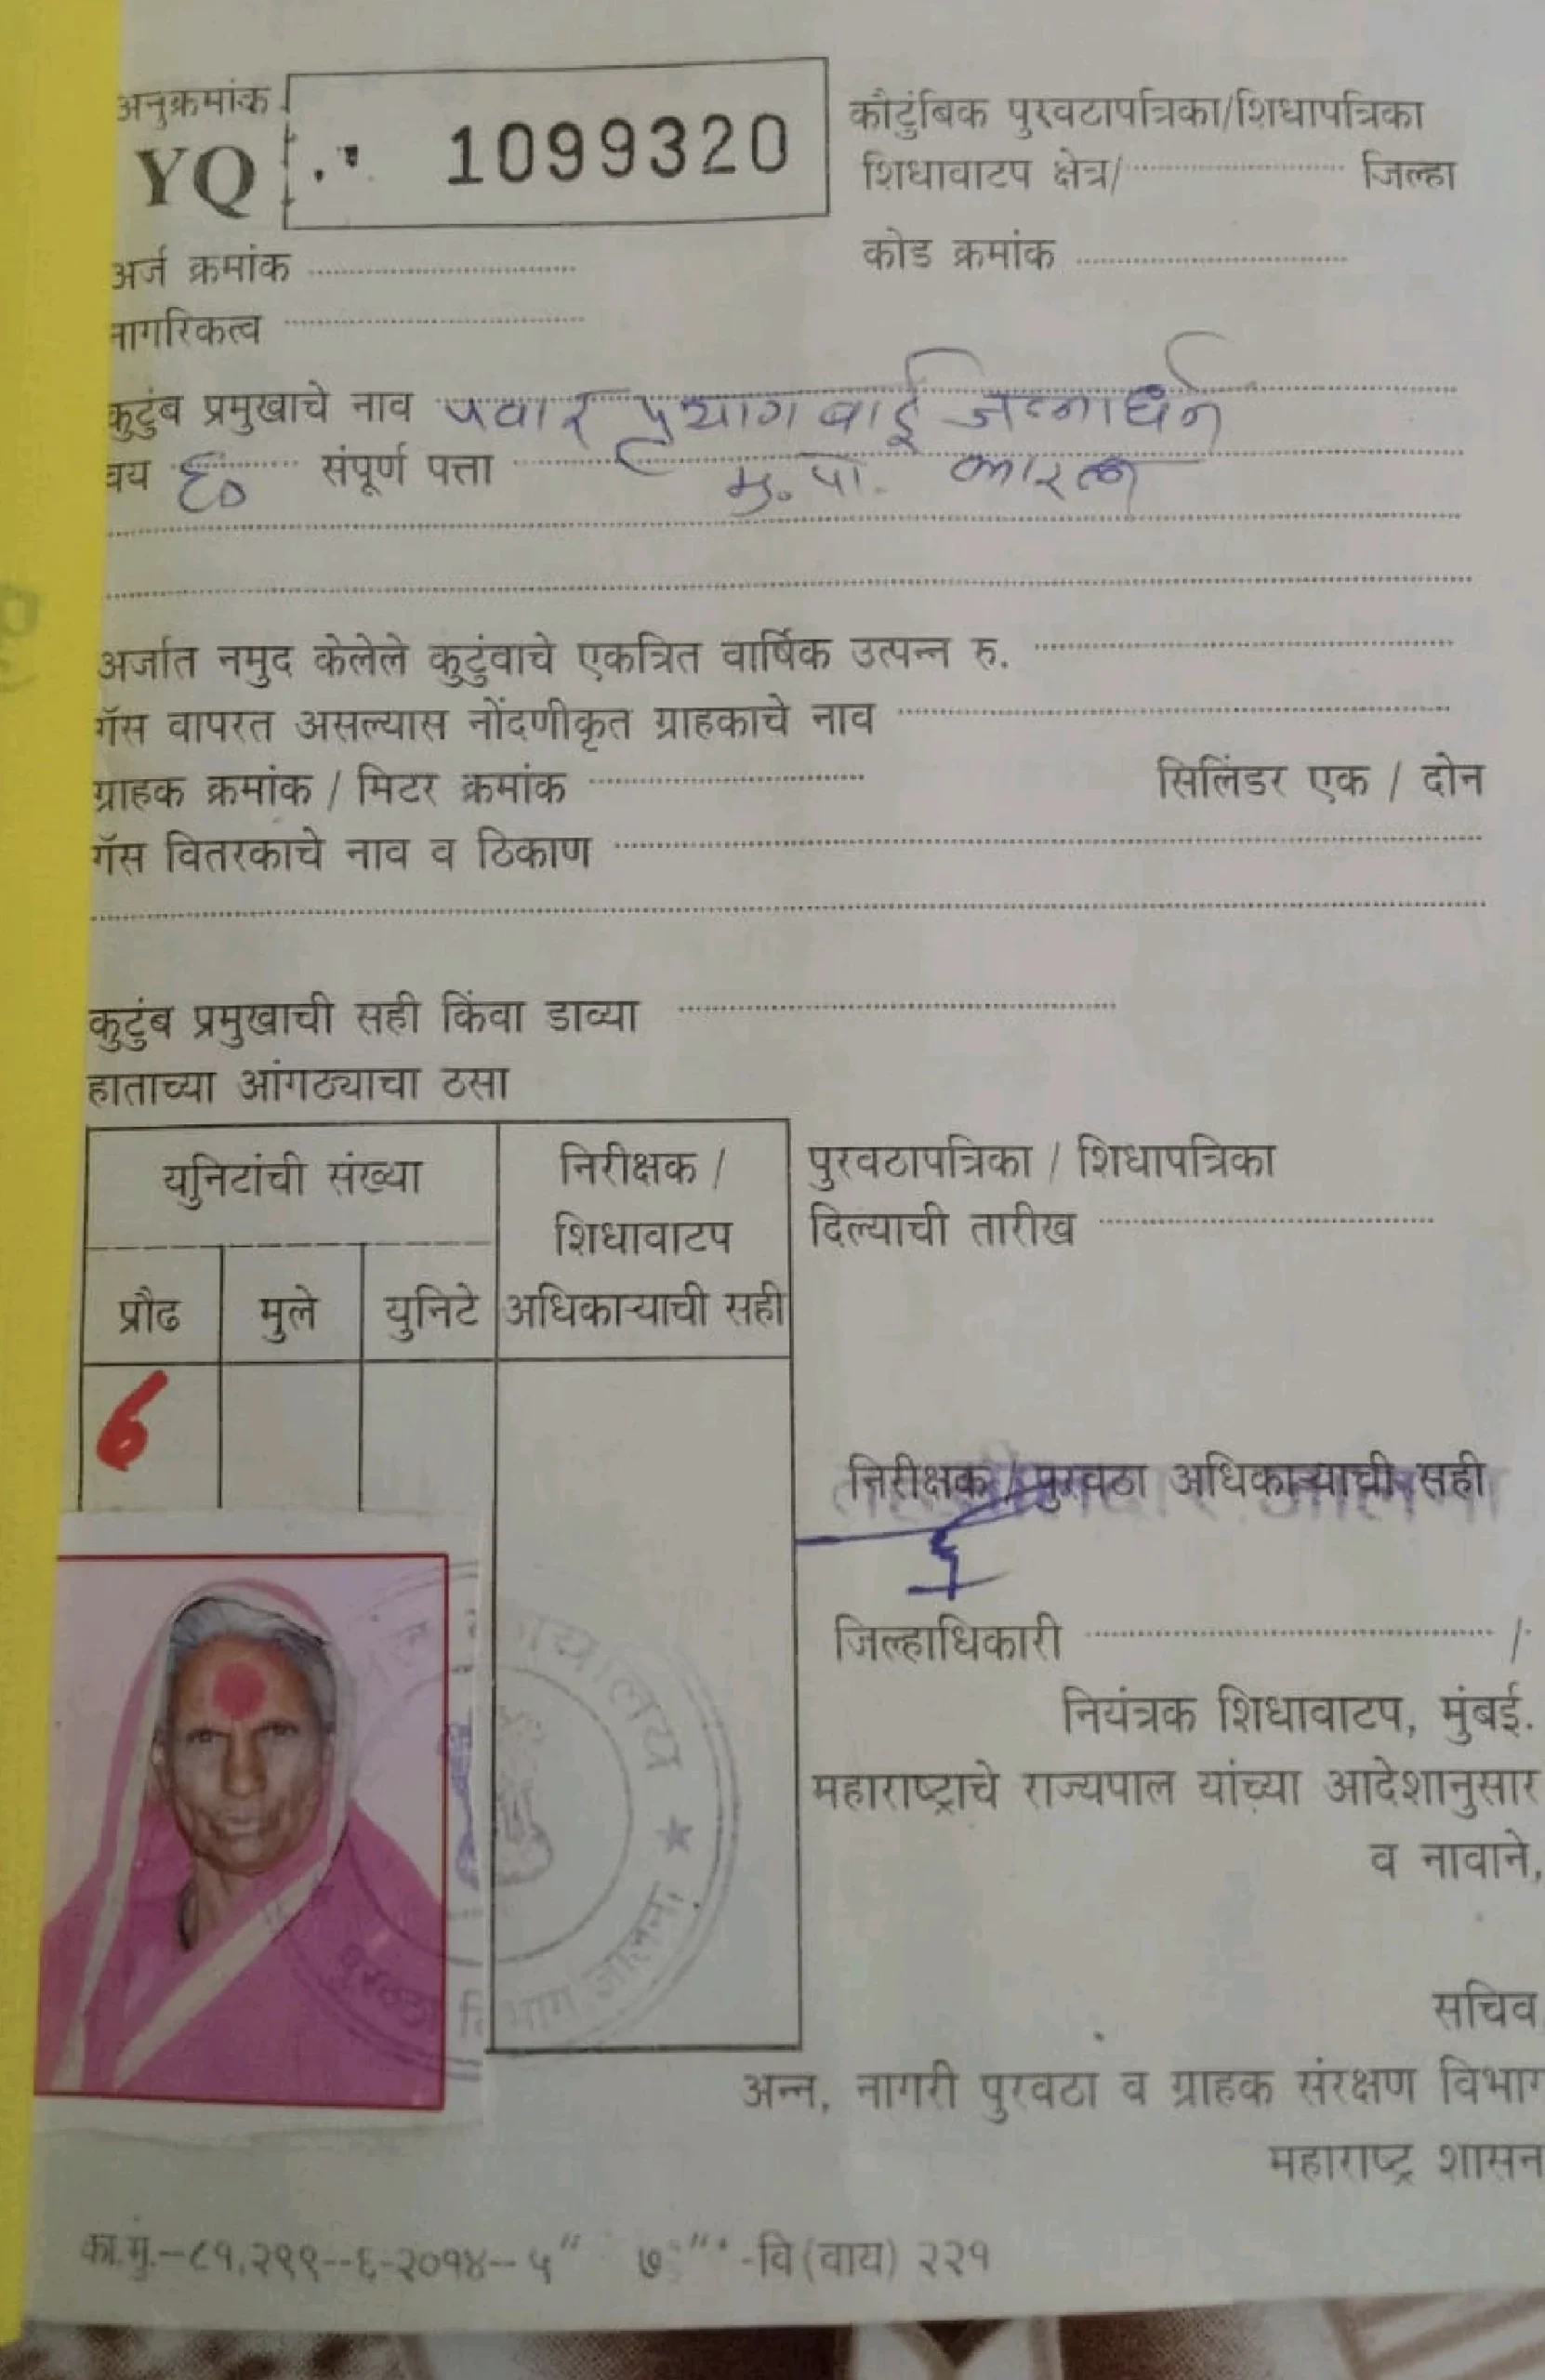 अनुक्रमांक
YQ 1099320
कौटुंबिक पुरवटापत्रिका/शिधापत्रिका
शिधावाटप क्षेत्र/ जिल्हा
अर्ज क्रमांक कोड क्रमांक
नागरिकत्व
कुटुंब प्रमुखाचे नाव पवार प्रयागबाई जनार्धन
वय ६० संपूर्ण पत्ता मु. पो.
अर्जात नमुद केलेले कुटुंवाचे एकत्रित वार्षिक उत्पन्न रु.
गॅस वापरत असल्यास नोंदणीकृत ग्राहकाचे नाव
ग्राहक क्रमांक / मिटर क्रमांक सिलिंडर एक / दोन
गॅस वितरकाचे नाव व ठिकाण
कुटुंब प्रमुखाची सही किंवा डाव्या
हाताच्या आंगठ्याचा ठसा
युनिटांची संख्या
प्रौढ मुले युनिटे
निरीक्षक /
शिधावाटप
अधिकाऱ्याची सही
6
पुरवठापत्रिका / शिधापत्रिका
दिल्याची तारीख
निरीक्षक / पुरवठा अधिकाऱ्याची सही
जिल्हाधिकारी /
नियंत्रक शिधावाटप, मुंबई.
महाराष्ट्राचे राज्यपाल यांच्या आदेशानुसार
व नावाने,
सचिव
अन्न, नागरी पुरवठा व ग्राहक संरक्षण विभाग
महाराष्ट्र शासन
पुरवठा विभाग जालना
का.मु.–८१,२९९--६-२०१४–५ ७ -वि (वाय) २२१